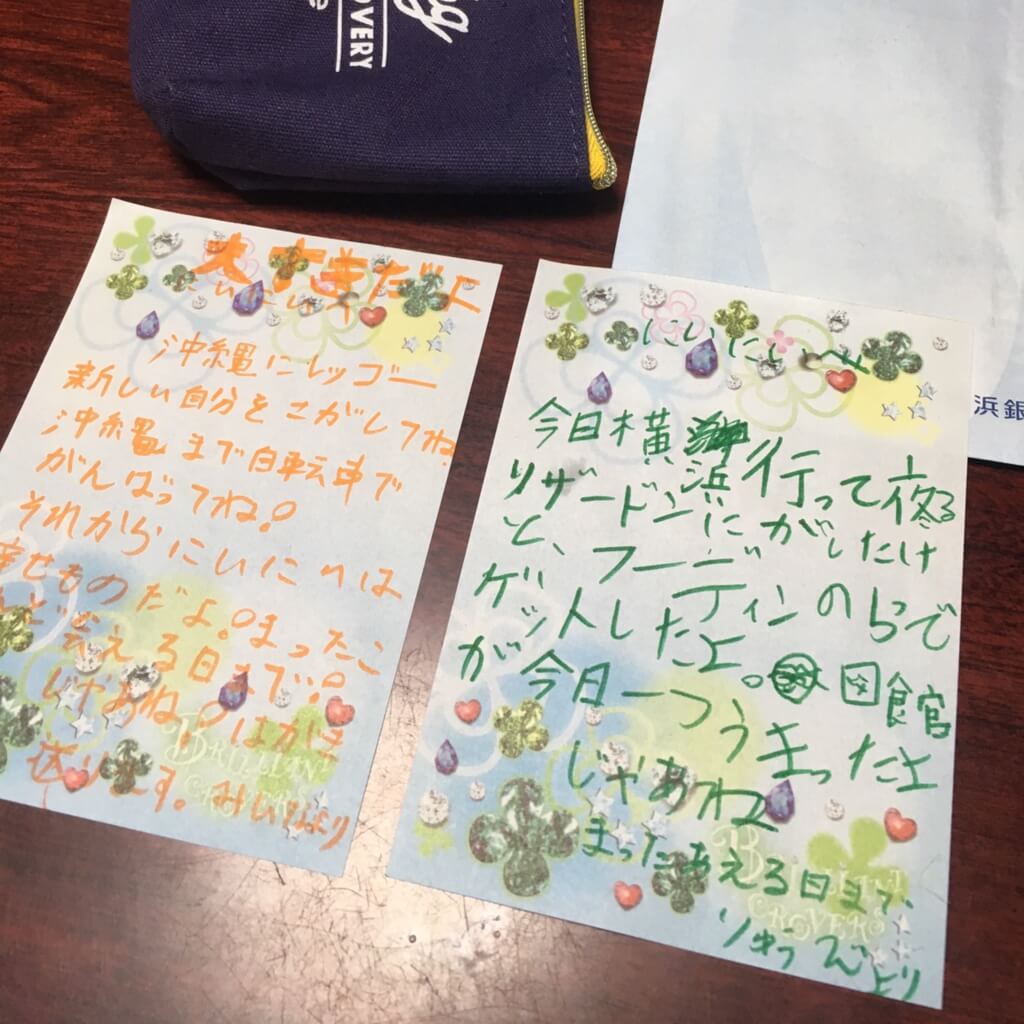 OVERY
浜銀
大すきだよ
にいにい
沖縄にレッゴー
新しい自分をさがしてね。
沖縄まで自転車で
がんばってね!
それからにいにいは
幸せものだよ。まったこ
んど会える日まで!
じゃあね!はがき
送ります。みいなより
BRILLIAN
にいにいへ
今日横浜行って夜る
リザードンにがしたけ
と、フーディンのらで
ゲットしたよ。図館
が今日一つうまったよ
じゃあね
まったあえる日まで、
りゅうせいより
BRILLIAN
CROVERS